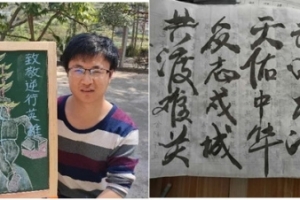 致敬逆行英雄
天佑中华
众志成城
共渡难关